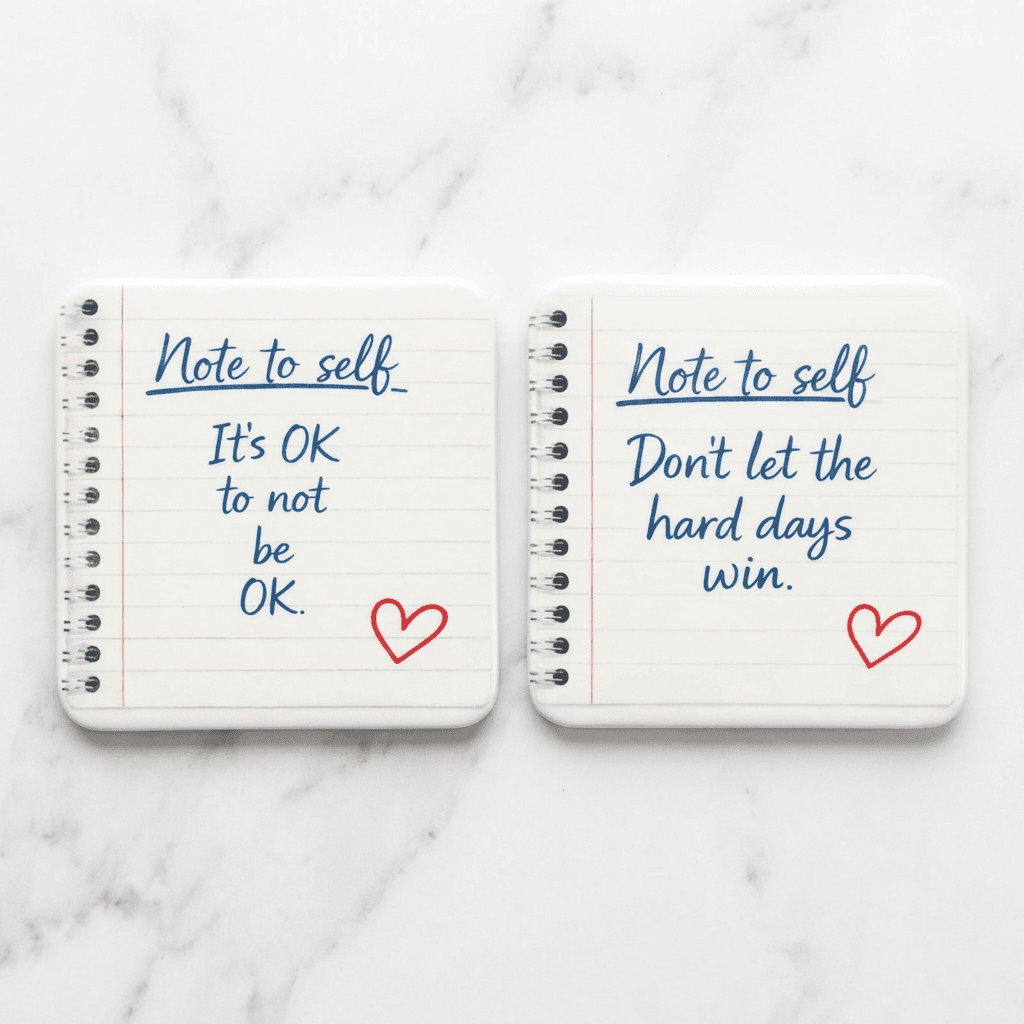 Note to self
It's OK
to not
be
OK.
Note to self
Don't let the
hard days
win.